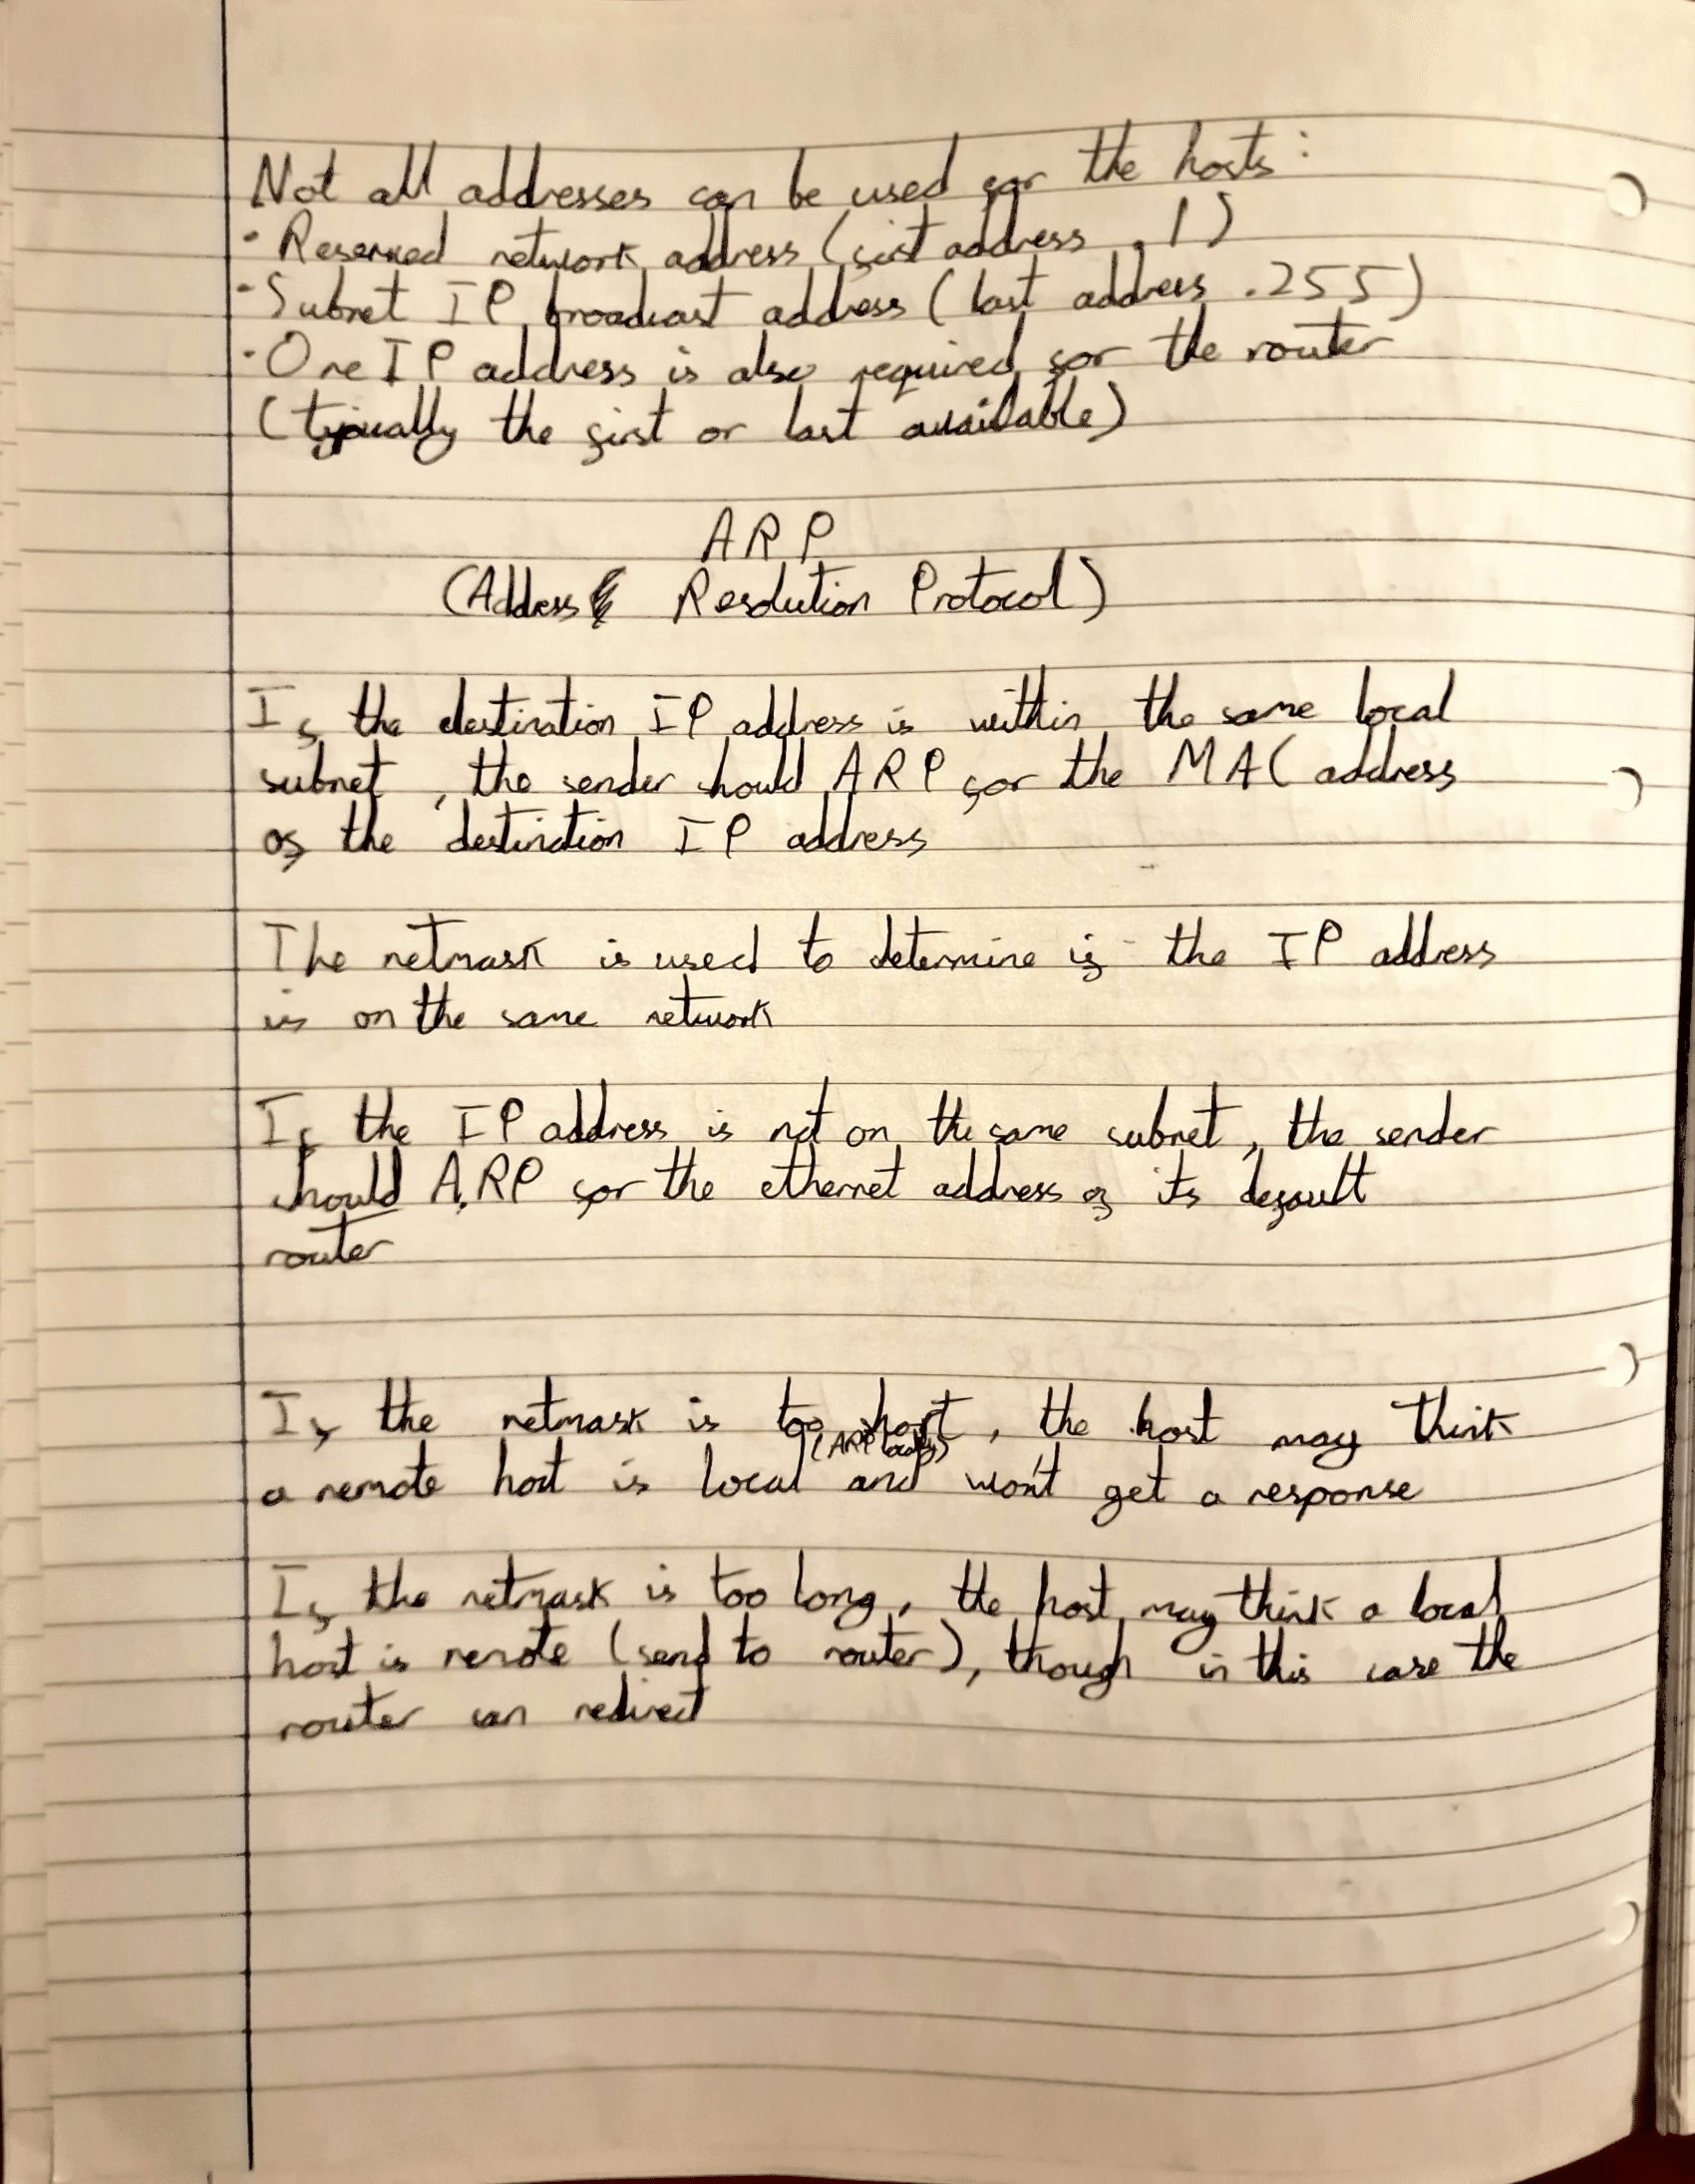 Not all addresses can be used for the hosts:
· Reserved network address (first address .1)
· Subnet IP broadcast address (last address .255)
· One IP address is also required for the router
(typically the first or last available)
ARP
(Address Resolution Protocol)
If the destination IP address is within the same local
subnet, the sender should ARP for the MAC address
of the destination IP address
The netmask is used to determine if the IP address
is on the same network
If the IP address is not on the same subnet, the sender
should ARP for the ethernet address of its default
router
If the netmask is too short, the host may think
(ARP locally)
a remote host is local and won't get a response
If the netmask is too long, the host may think a local
host is remote (send to router), though in this case the
router can redirect